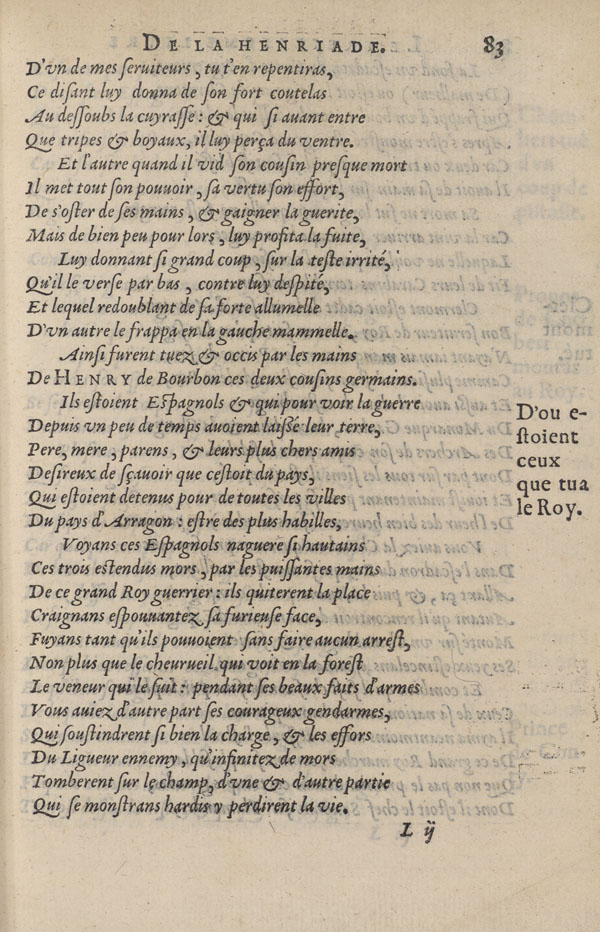 DE LA HENRIADE. 83
D'vn de mes ſeruiteurs, tu t'en repentiras,
Ce diſant luy donna de ſon fort coutelas
Au deſſoubs la cuyraſſe: & qui ſi auant entre
Que tripes & boyaux, il luy perça du ventre.
Et l'autre quand il vid ſon couſin preſque mort
Il met tout ſon pouuoir, ſa vertu ſon effort,
De s'oſter de ſes mains, & gaigner la guerite,
Mais de bien peu pour lors, luy profita la fuite,
Luy donnant ſi grand coup, ſur la teſte irrité,
Qu'il le verſe par bas, contre luy deſpité,
Et lequel redoublant de ſa forte allumelle
D'vn autre le frappa en la gauche mammelle.
Ainſi furent tuez & occis par les mains
De HENRY de Bourbon ces deux couſins germains.
Ils eſtoient Eſpagnols & qui pour voir la guerre
Depuis vn peu de temps auoient laiſſé leur terre,
Pere, mere, parens, & leurs plus chers amis
Deſireux de ſçauoir que ceſtoit du pays,
Qui eſtoient detenus pour de toutes les villes
Du pays d'Arragon: eſtre des plus habilles,
Voyans ces Eſpagnols naguere ſi hautains
Ces trois eſtendus mors, par les puiſſantes mains
De ce grand Roy guerrier: ils quiterent la place
Craignans eſpouuantez ſa furieuſe face,
Fuyans tant qu'ils pouuoient ſans faire aucun arreſt,
Non plus que le cheurueil qui voit en la foreſt
Le veneur qui le ſuit: pendant ſes beaux faits d'armes
Vous auiez d'autre part ſes courageux gendarmes,
Qui ſouſtindrent ſi bien la charge, & les effors
Du Ligueur ennemy, qu'infinitez de mors
Tomberent ſur le champ, d'vne & d'autre partie
Qui ſe monſtrans hardis y perdirent la vie.
L ij
D'ou e-
ſtoient
ceux
que tua
le Roy.